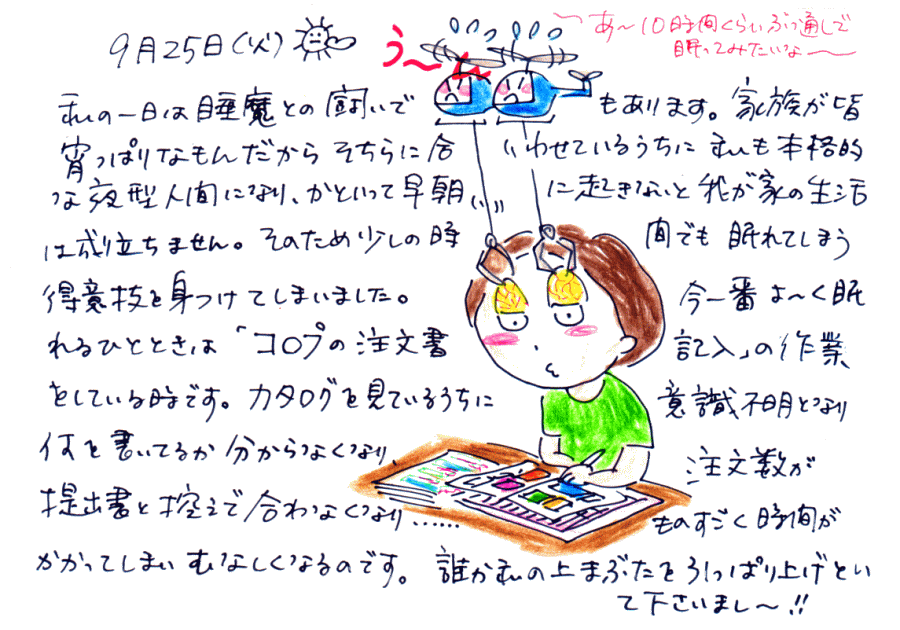 9月25日(火)
う〜
あ〜10時間くらいぶっ通しで
眠ってみたいな〜
私の一日は睡魔との闘いで もあります。家族が皆
宵っぱりなもんだから そちらに合 わせているうちに 私も本格的
な夜型人間になり、かといって早朝 に起きないと 我が家の生活
は成立ちません。そのため少しの時 間でも 眠れてしまう
得意技を身つけてしまいました。 今一番 よ〜く眠
れるひとときは「コロプの注文書 記入」の作業
をしている時です。カタログを見ているうちに 意識不明となり
何を書いてるか 分からなくなり、 注文数が
提出書と控えで合わなくなり…… ものすごく時間が
かかってしまい むなしくなるのです。 誰か私の上まぶたを引っぱり上げとい
て下さいまし〜!!